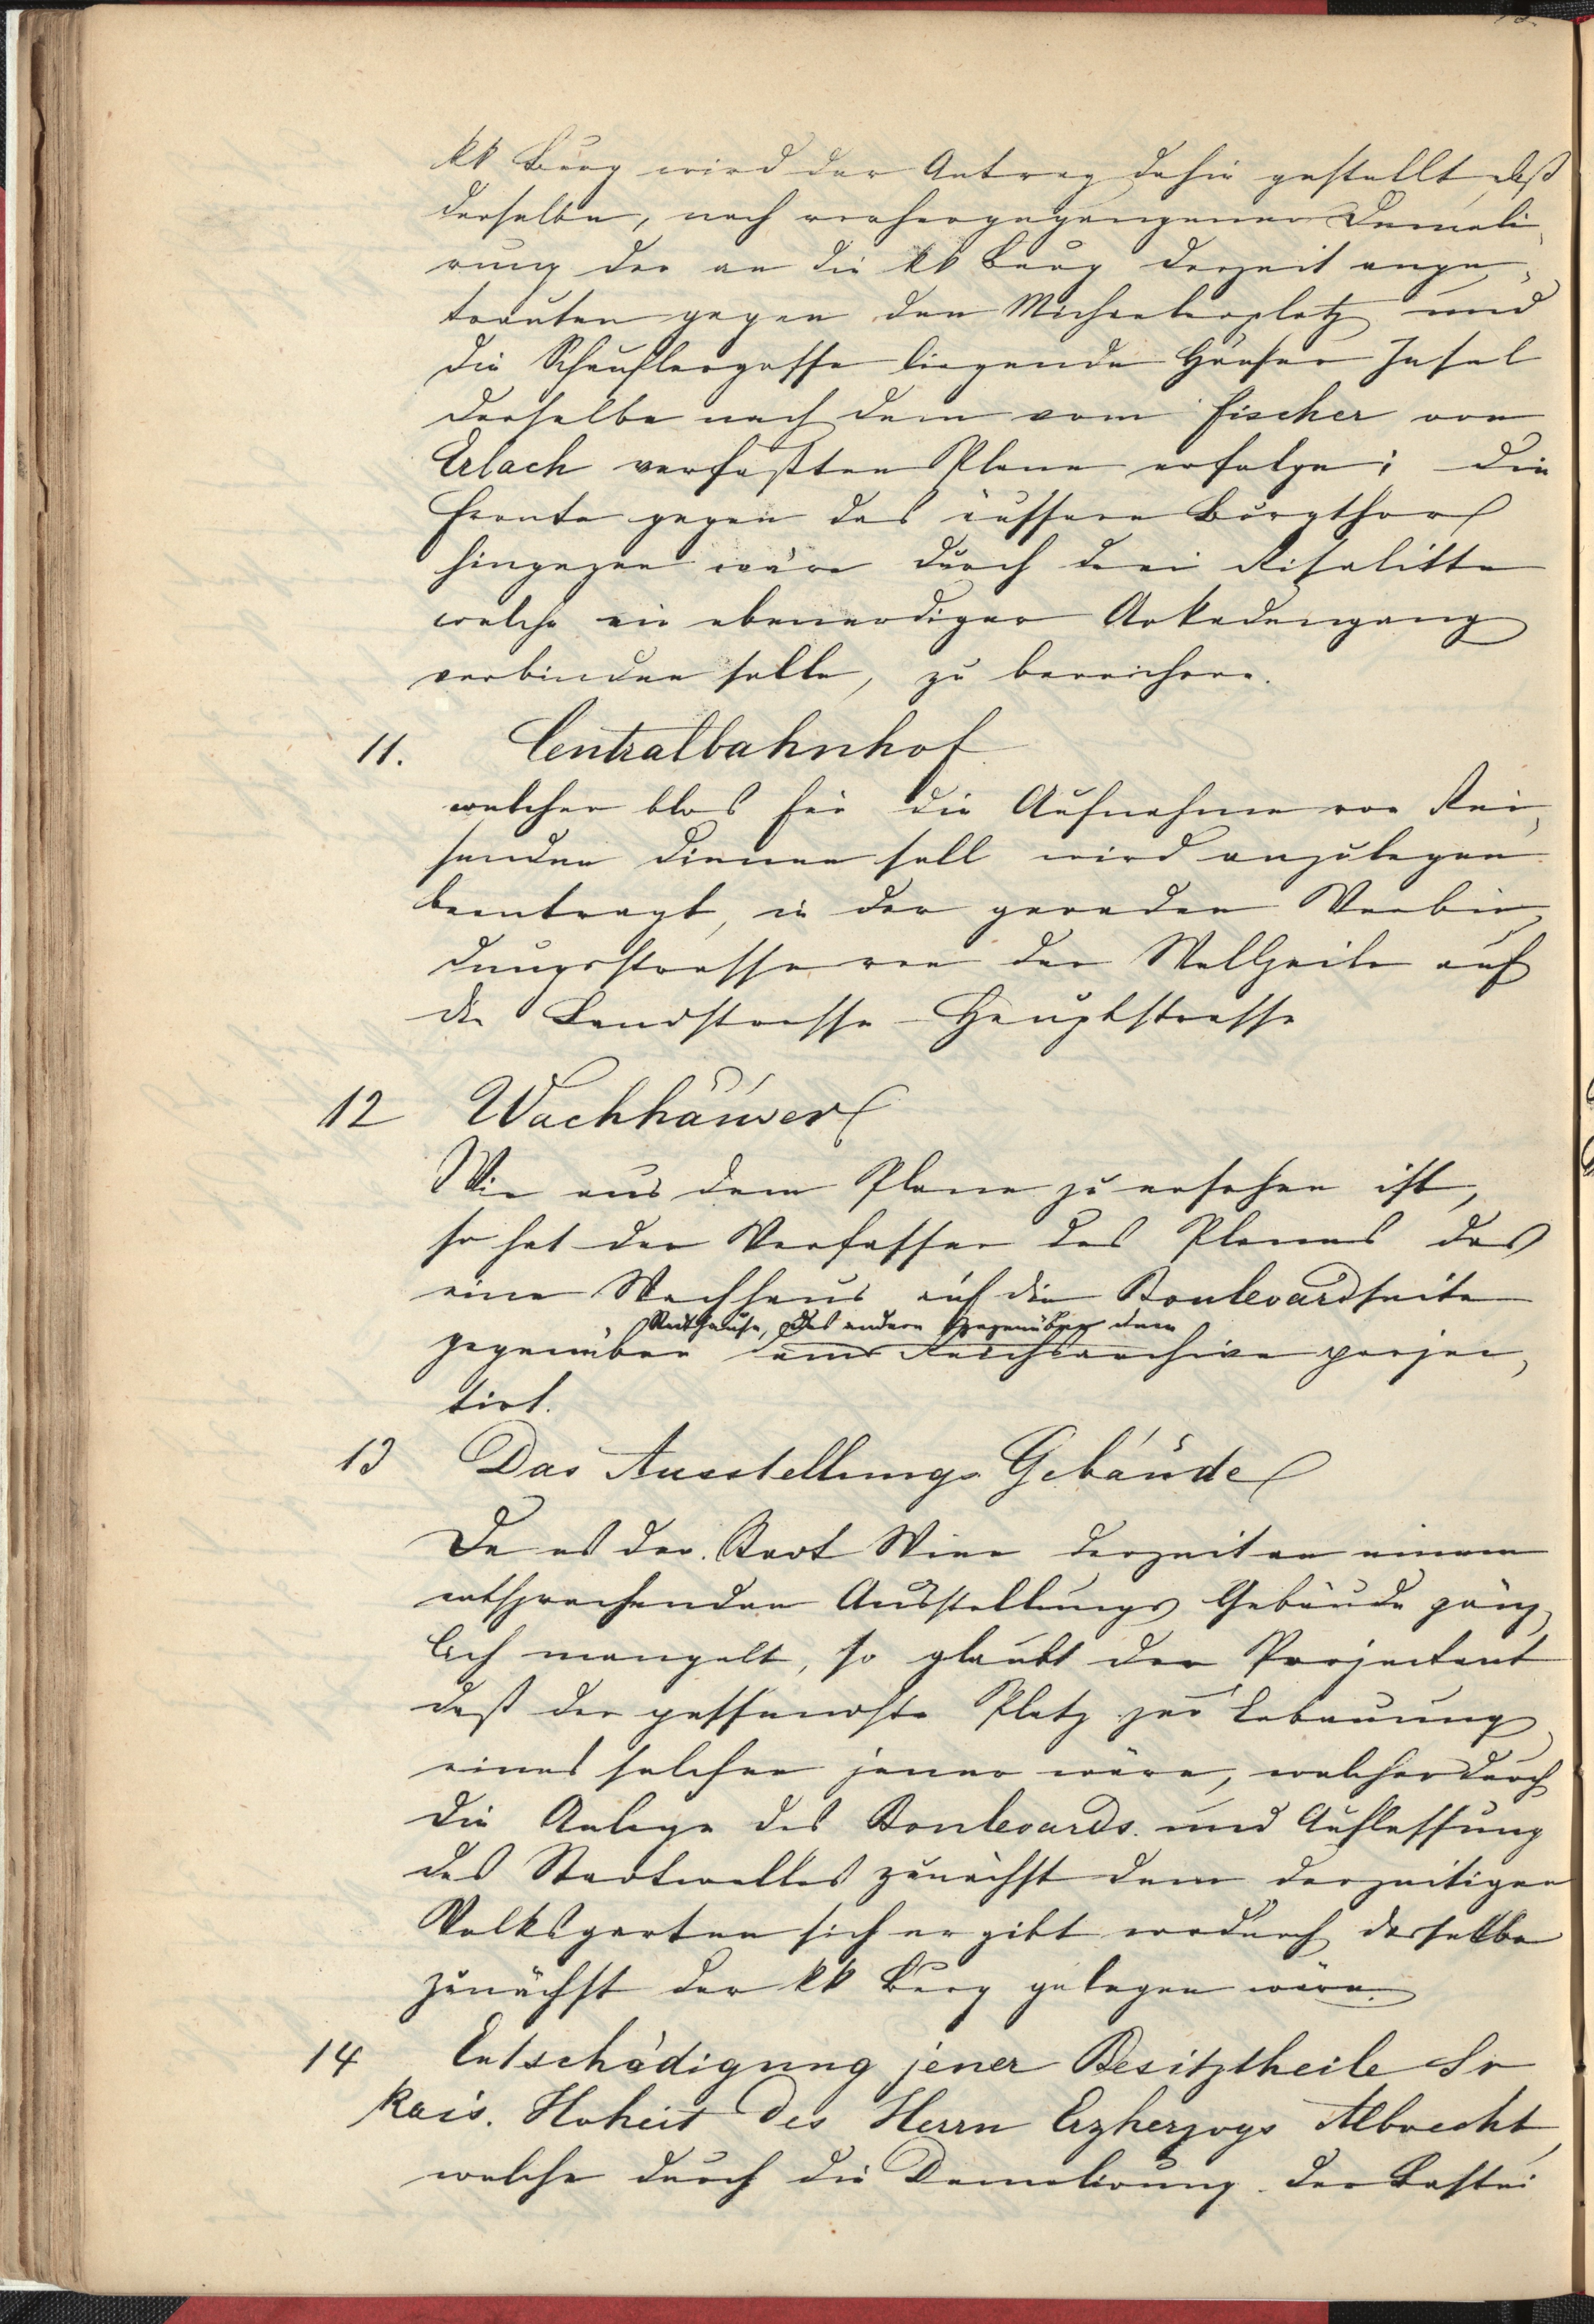 kk Burg wird der Antrag dahin gestellt daß
derselbe, nach vorhergegangener Demoli-
rung der an die kk Burg derzeit ange-
bauten gegen den Michaelerplatz und
die Schauflergasse liegende Häuser Insel
derselbe nach dem vom Fischer von
Erlach verfaßten Plane erfolge; die
Fronte gegen das äussere Burgthor
hingegen wäre durch drei Risalitte
welche ein ebenerdiger Arkadengang
verbinden solle, zu bereichern.
11. Centralbahnhof
welcher blos für die Aufnahme von Rei-
senden dienen soll wird anzulegen
beantragt, in der geraden Verbin-
dungsstrasse von der Wollzeile auf
die Landstrasse-Hauptstrasse
12 Wachhäuser
Wie aus dem Plane zu ersehen ist,
so hat der Verfasser des Planes das
eine Wachhaus auf die Boulevardseite
Rathause, das andere gegenüber dem
gegenüber dem Reichsarchive projec-
tirt.
13 Das Ausstellungs Gebäude
Da es der Stadt Wien derzeit an einem
entsprechenden Ausstellungs Gebäude gänz-
lich mangelt, so glaubt der Projectant
daß der passendste Platz zur Erbauung
eines solchen jener wäre, welcher durch
die Anlage des Boulevards und Auflassung
des Stadtwalles zunächst dem derzeitigen
Volksgarten sich ergibt wodurch dasselbe
zunächst der kk Burg gelegen wäre.
14 Entschädigung jener Besitztheile Sr
kais. Hoheit des Herrn Erzherzogs Albrecht,
welche durch die Demolirung der Bastei